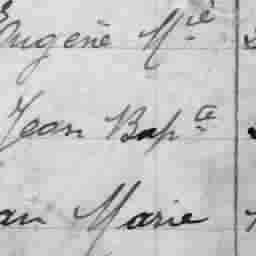 Eugène Mie
Jean Bapte
an Marie